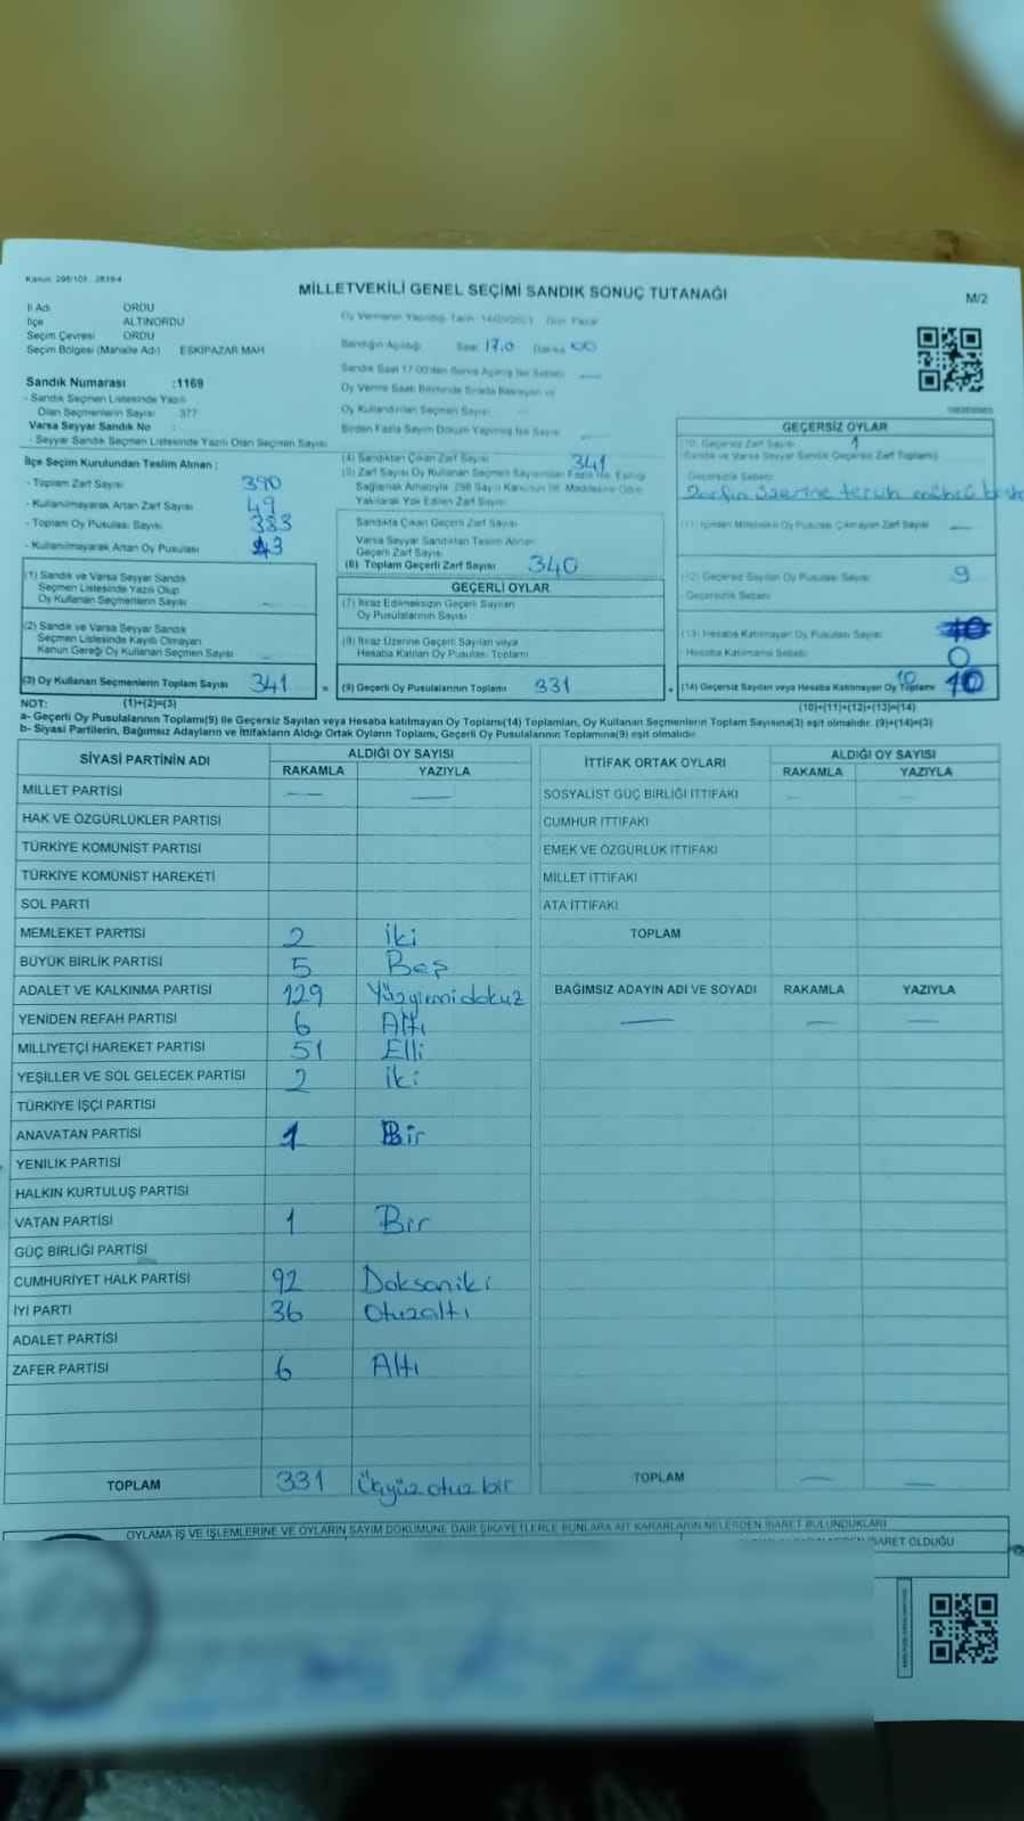 MİLLETVEKİLİ GENEL SEÇİMİ SANDIK SONUÇ TUTANAĞI
M/2
İl Adı ORDU
İlçe ALTINORDU
Seçim Çevresi ORDU
Seçim Bölgesi (Mahalle Adı) ESKİPAZAR MAH
Sandık Numarası :1169
- Sandık Seçmen Listesinde Yazılı
Olan Seçmenlerin Sayısı 377
Varsa Seyyar Sandık No
- Seyyar Sandık Seçmen Listesinde Yazılı Olan Seçmen Sayısı
İlçe Seçim Kurulundan Teslim Alınan :
- Toplam Zarf Sayısı 390
- Kullanılmayarak Artan Zarf Sayısı 49
- Toplam Oy Pusulası Sayısı 383
- Kullanılmayarak Artan Oy Pusulası 43
(1) Sandık ve Varsa Seyyar Sandık
Seçmen Listesinde Yazılı Olup
Oy Kullanan Seçmenlerin Sayısı
(2) Sandık ve Varsa Seyyar Sandık
Seçmen Listesinde Kayıtlı Olmayan
Kanun Gereği Oy Kullanan Seçmen Sayısı
(3) Oy Kullanan Seçmenlerin Toplam Sayısı 341
Saat 17.0 Dakika 00
(4) Sandıktan Çıkan Zarf Sayısı 341
Sandıkta Çıkan Geçerli Zarf Sayısı
Varsa Seyyar Sandıktan Teslim Alınan
Geçerli Zarf Sayısı
(6) Toplam Geçerli Zarf Sayısı 340
GEÇERLİ OYLAR
(7) İtiraz Edilmeksizin Geçerli Sayılan
Oy Pusulalarının Sayısı
(8) İtiraz Üzerine Geçerli Sayılan veya
Hesaba Katılan Oy Pusulası Toplamı
(9) Geçerli Oy Pusulalarının Toplamı 331
GEÇERSİZ OYLAR
(10) Geçersiz Zarf Sayısı 1
Geçersizlik Sebebi
Zarfın üzerine tercih mührü
(12) Geçersiz Sayılan Oy Pusulası Sayısı 9
Geçersizlik Sebebi
(13) Hesaba Katılmayan Oy Pusulası Sayısı 10
Hesaba Katılmama Sebebi 0
(14) Geçersiz Sayılan veya Hesaba Katılmayan Oy Toplamı 10 10
NOT: (1)+(2)=(3) (10)+(11)+(12)+(13)=(14)
a- Geçerli Oy Pusulalarının Toplamı(9) ile Geçersiz Sayılan veya Hesaba katılmayan Oy Toplamı(14) Toplamları, Oy Kullanan Seçmenlerin Toplam Sayısına(3) eşit olmalıdır. (9)+(14)=(3)
b- Siyasi Partilerin, Bağımsız Adayların ve İttifakların Aldığı Ortak Oyların Toplamı, Geçerli Oy Pusulalarının Toplamına(9) eşit olmalıdır
SİYASİ PARTİNİN ADI ALDIĞI OY SAYISI
RAKAMLA YAZIYLA
MİLLET PARTİSİ — —
HAK VE ÖZGÜRLÜKLER PARTİSİ
TÜRKİYE KOMÜNİST PARTİSİ
TÜRKİYE KOMÜNİST HAREKETİ
SOL PARTİ
MEMLEKET PARTİSİ 2 İki
BÜYÜK BİRLİK PARTİSİ 5 Beş
ADALET VE KALKINMA PARTİSİ 129 Yüzyirmidokuz
YENİDEN REFAH PARTİSİ 6 Altı
MİLLİYETÇİ HAREKET PARTİSİ 51 Elli
YEŞİLLER VE SOL GELECEK PARTİSİ 2 İki
TÜRKİYE İŞÇİ PARTİSİ
ANAVATAN PARTİSİ 1 Bir
YENİLİK PARTİSİ
HALKIN KURTULUŞ PARTİSİ
VATAN PARTİSİ 1 Bir
GÜÇ BİRLİĞİ PARTİSİ
CUMHURİYET HALK PARTİSİ 92 Doksaniki
İYİ PARTİ 36 Otuzaltı
ADALET PARTİSİ
ZAFER PARTİSİ 6 Altı
TOPLAM 331 Üçyüz otuz bir
İTTİFAK ORTAK OYLARI ALDIĞI OY SAYISI
RAKAMLA YAZIYLA
SOSYALİST GÜÇ BİRLİĞİ İTTİFAKI
CUMHUR İTTİFAKI
EMEK VE ÖZGÜRLÜK İTTİFAKI
MİLLET İTTİFAKI
ATA İTTİFAKI
TOPLAM
BAĞIMSIZ ADAYIN ADI VE SOYADI RAKAMLA YAZIYLA
— — —
TOPLAM — —
OYLAMA İŞ VE İŞLEMLERİNE VE OYLARIN SAYIM DÖKÜMÜNE DAİR ŞİKAYETLERLE BUNLARA AİT KARARLARIN NELERDEN İBARET BULUNDUKLARI